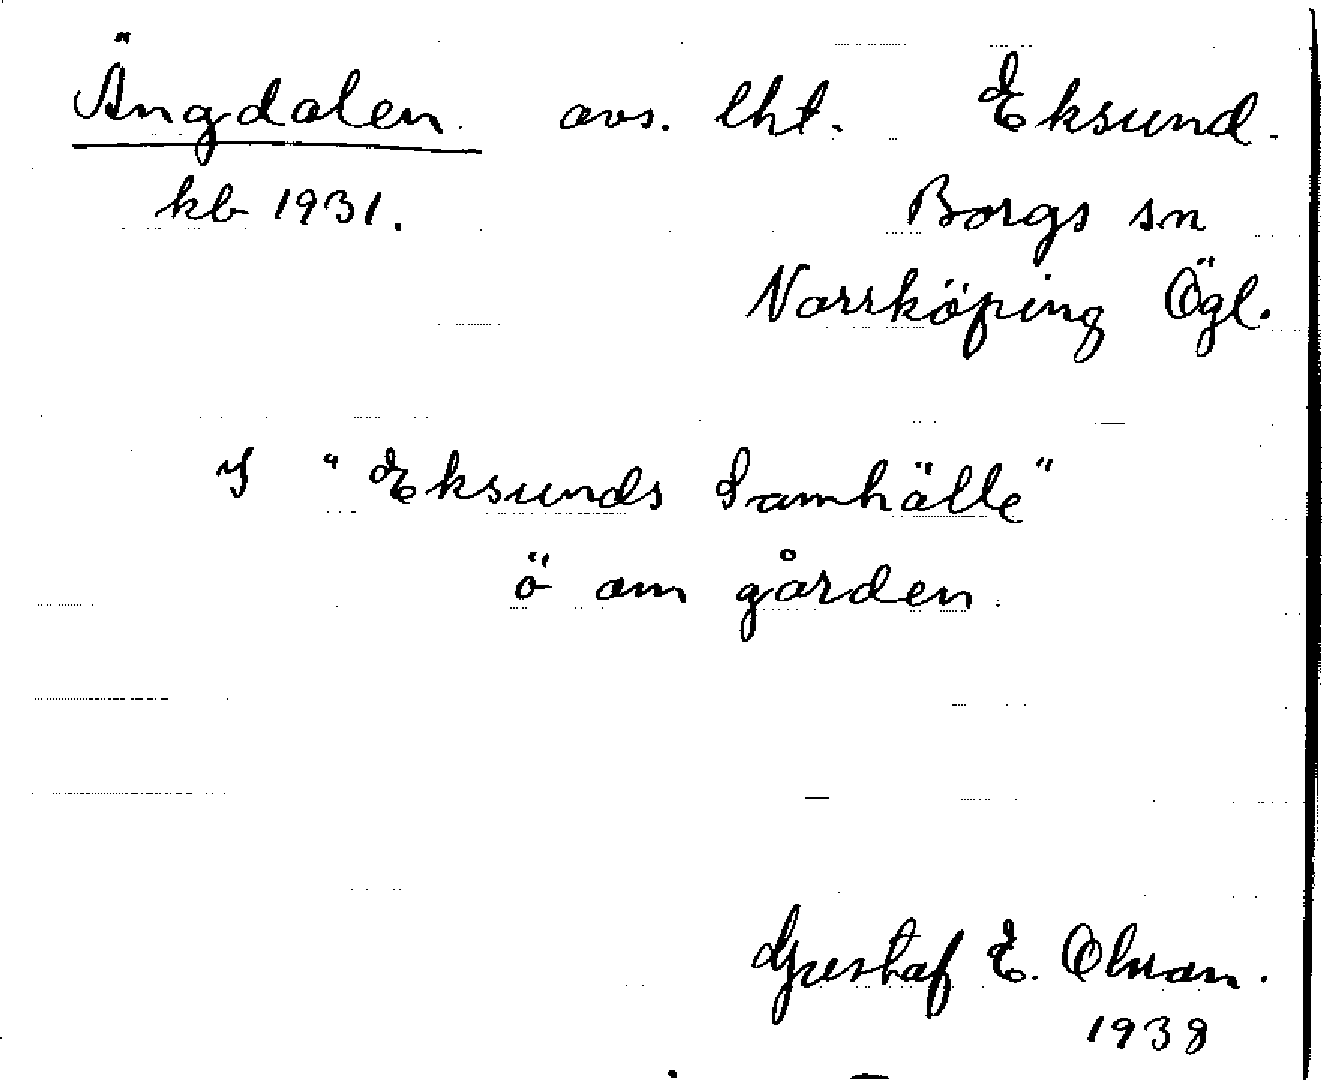 Ängdalen. avs. lht. Eksund.
kb 1931. Borgs sn
Norrköping Ögl.
I "Eksunds Samhälle"
ö om gården.
Gustaf E. Olson.
1938